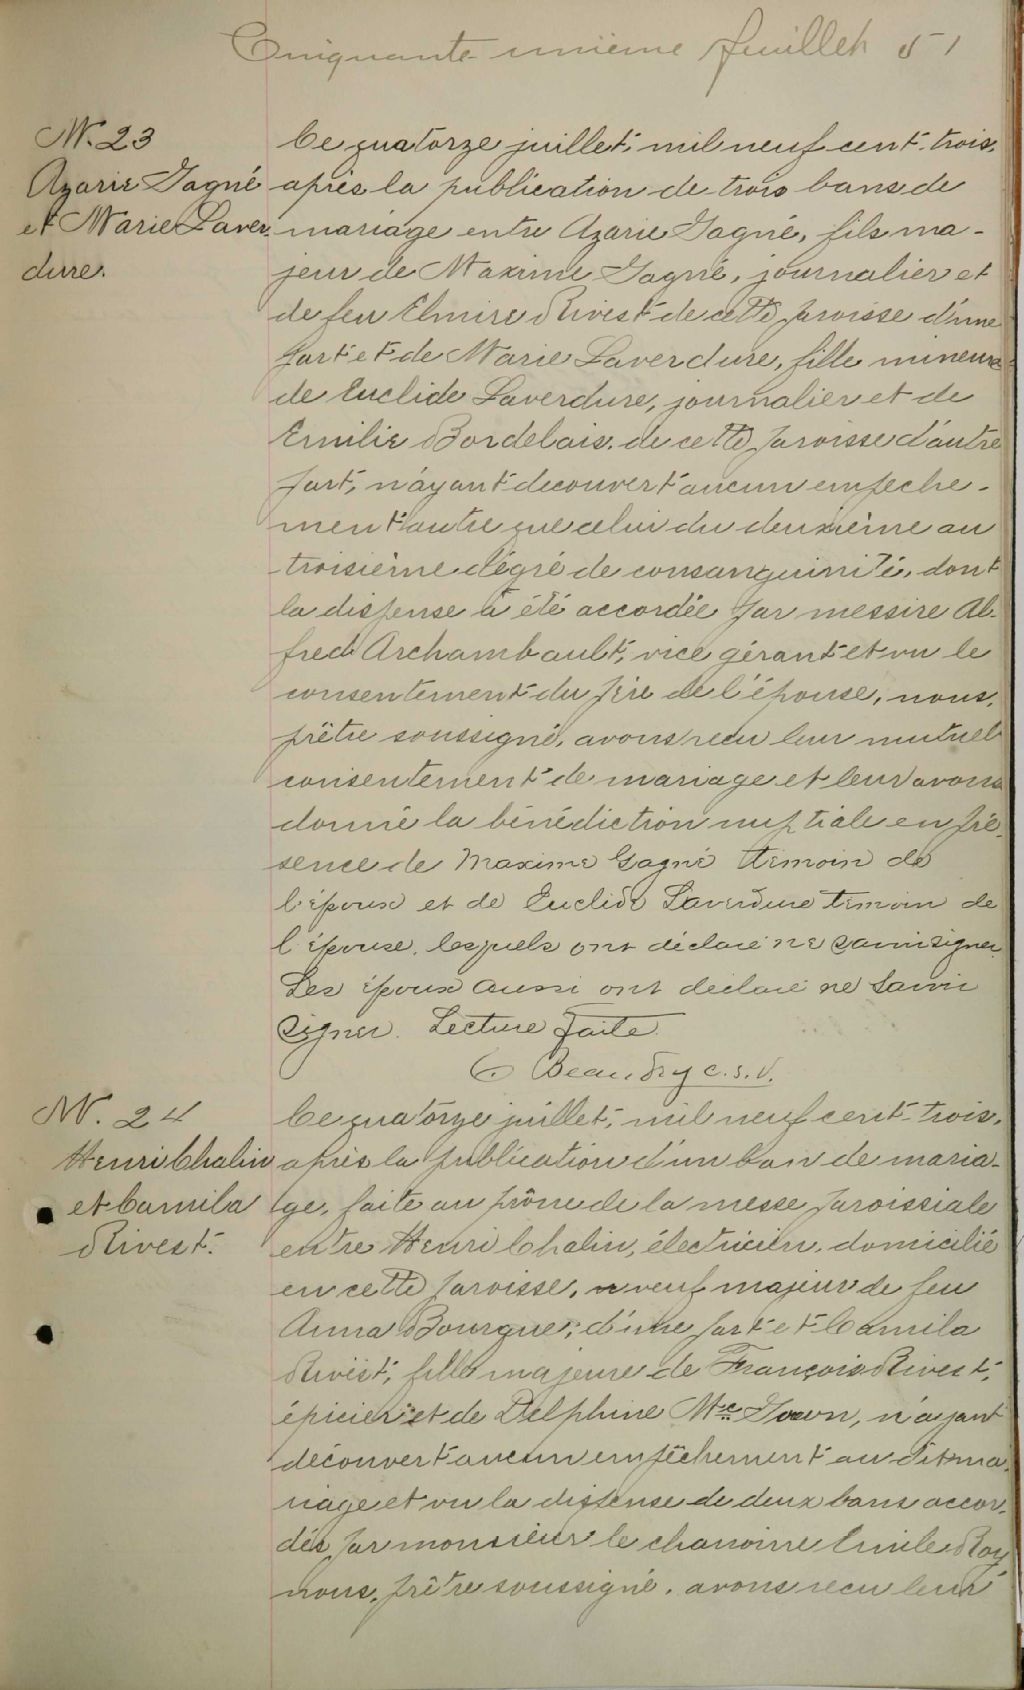 Cinquante unième feuillet 51
M. 23
Azarie Gagné
et Marie Laver
dure.
Ce quatorze juillet, mil neuf cent trois,
après la publication de trois bans de
mariage entre Azarie Gagné, fils ma-
jeur de Maxime Gagné, journalier et
de feu Elmire Rivest de cette paroisse d'une
part et de Marie Laverdure, fille mineure
de Euclide Laverdure, journalier et de
Emilie Bordelais, de cette paroisse d'autre
part, n'ayant decouvert aucun empeche-
ment autre que celui du deuxième au
troisième dégré de consanguinité, dont
la dispense a été accordée par messire Al-
fred Archambault, vice gérant et vu le
consentement du père de l'épouse, nous,
prêtre soussigné, avons recu leur mutuel
consentement de mariage et leur avons
donné la bénédiction nuptiale en pré-
sence de Maxime Gagné temoin de
l'époux et de Euclide Laverdure temoin de
l'épouse, lesquels ont déclaré ne savoir signer.
Les époux aussi ont declaré ne savoir
signer. Lecture faite
C Beaudry c.s.v.
M. 24
Henri Chalin
et Camila
Rivest.
Ce quatorze juillet, mil neuf cent trois,
après la publication d'un ban de maria-
ge, faite au prône de la messe paroissiale
entre Henri Chalin, électricien, domicilié
en cette paroisse, veuf majeur de feu
Anna Bourque, d'une part et Camila
Rivest, fille majeure de François Rivest,
épicier et de Delphine Mc Gown, n'ayant
découvert aucun empêchement au dit ma-
riage et vu la dispense de deux bans accor-
dés par monsieur le chanoine Emile Roy
nous, prêtre soussigné, avons recu leur